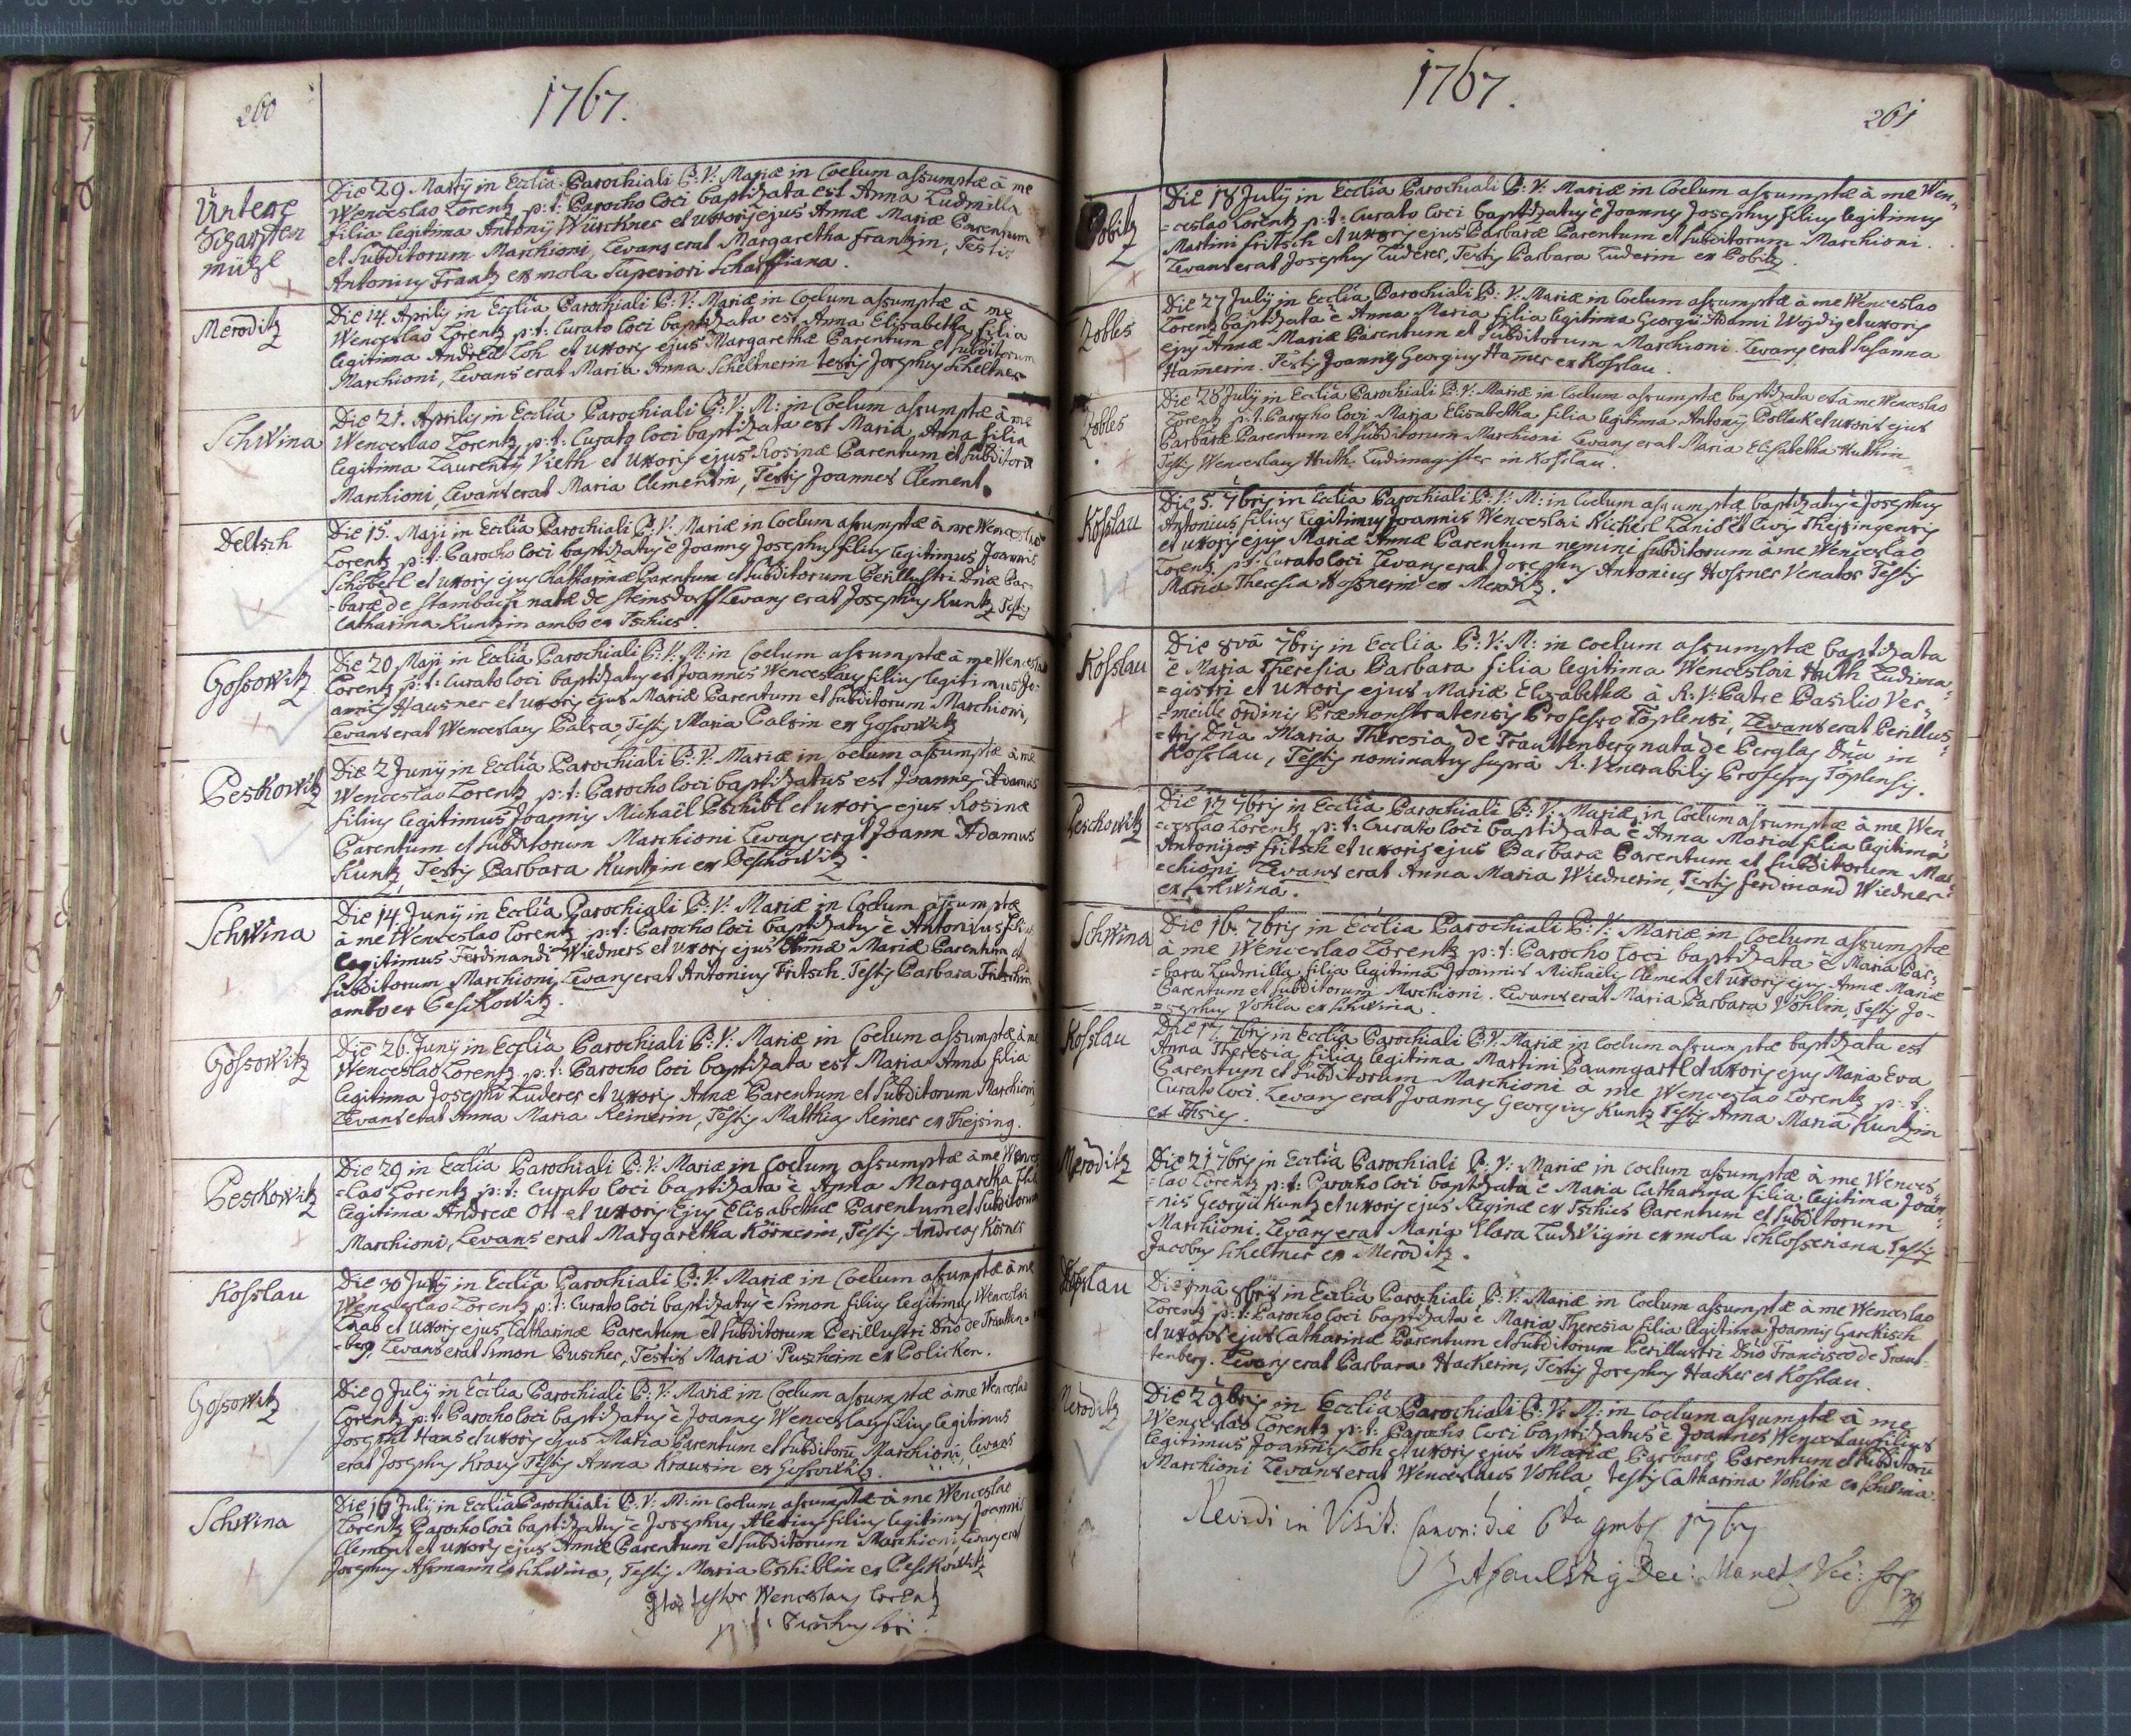 260
1767.
Untere
Scharffen
mühl
Die 29 Martÿ in Ecclia Parochiali B: V: Mariæ in Coelum assumptæ à me
Wenceslao Lorentz p: t: Parocho loci baptizata est Anna Ludmilla
filia legitima Antonÿ Würckner et uxoris ejus Annæ Mariæ Parentum
et Subditorum Marchioni, Levans erat Margaretha Frantzin, Testis
Antonius Frantz ex mola Superiori Scharffiana.
Meroditz
Die 14. Aprilis in Ecclia Parochiali B: V: Mariæ in Coelum assumptæ à me
Wenceslao Lorentz p: t: Curato loci baptizata est Anna Elisabetha filia
legitima Andreæ Loh et uxoris ejus Margarethæ Parentum et Subditorum
Marchioni, Levans erat Maria Anna Scheltnerin testis Josephus Scheltner
Schwina
Die 21. Aprilis in Ecclia Parochiali B: V: M: in Coelum assumptæ à me
Wenceslao Lorentz p: t: Curato loci baptizata est Maria Anna filia
legitima Laurentÿ Vieth et Uxoris ejus Rosinæ Parentum et Subditorū
Marchioni, Levans erat Maria Clementin, Testis Joannes Clement.
Deltsch
Die 15. Maji in Ecclia Parochiali B: V: Mariæ in Coelum assumptæ à me Wenceslao
Lorentz p: t: Parocho loci baptizatus ē Joannes Josephus filius legitimus Joannis
Schöberl et uxoris ejus Catharinæ Parentum et Subditorum Perillustri Dnæ Bar-
-baræ de Stambach natæ de Steinsdorff Levans erat Josephus Kuntz Testis
Catharina Kuntzin ambo ex Tschies.
Gossowitz
Die 20 Maji in Ecclia Parochiali B: V: M: in Coelum assumptæ à me Wenceslao
Lorentz p: t: Curato loci baptizatus est Joannes Wenceslaus filius legitimus Jo-
annis Hausner et uxoris ejus Mariæ Parentum et Subditorum Marchioni,
Levans erat Wenceslaus Palsa Testis Maria Palsin ex Gossowitz
Peskowitz
Die 2 Junÿ in Ecclia Parochiali B: V: Mariæ in Coelum assumptæ à me
Wenceslao Lorentz p: t: Parocho loci baptizatus est Joannes Adamus
filius legitimus Joannis Michaël Pschibl et uxoris ejus Rosinæ
Parentum et Subditorum Marchioni Levans erat Joann Adamus
Kuntz, Testis Barbara Kuntzin ex Peskowitz.
Schwina
Die 14 Junÿ in Ecclia Parochiali B: V: Mariæ in Coelum assumptæ
à me Wenceslao Lorentz p: t: Parocho loci baptizatus ē Antonius Filius
legitimus Ferdinandi Wiedners et Uxoris ejus Annæ Mariæ Parentum et
Subditorum Marchioni, Levans erat Antonius Fritsch, Testis Barbara Fritschin
ambo ex Peskowitz.
Gossowitz
Die 26. Junÿ in Ecclia Parochiali B: V: Mariæ in Coelum assumptæ à me
Wenceslao Lorentz p: t: Parocho loci baptizata est Maria Anna filia
legitima Josephi Luderer et uxoris Annæ Parentum et Subditorum Marchioni,
Levans erat Anna Maria Reinerin, Testis Matthias Reiner ex Thejsing.
Peskowitz
Die 29 in Ecclia Parochiali B: V: Mariæ in Coelum assumptæ à me Wences
=lao Lorentz p: t: Curato loci baptizata ē Anna Margaretha filia
legitima Andreæ Ott et uxoris Ejus Elisabethæ Parentum et Subditorum
Marchioni, Levans erat Margaretha Körnerin, Testis Andreas Körner
Kosslau
Die 30 Junÿ in Ecclia Parochiali B: V: Mariæ in Coelum assumptæ à me
Wenceslao Lorentz p: t: Curato loci baptizatus ē Simon filius legitimus Wenceslai
Knab et Uxoris ejus Catharinæ Parentum et Subditorum Perillustri Dno de Trautten-
-berg, Levans erat Simon Puscher, Testis Maria Puscherin ex Policken.
Gossowitz
Die 9 Julÿ in Ecclia Parochiali B: V: Mariæ in Coelum assumptæ à me Wenceslao
Lorentz p: t: Parocho loci baptizatus ē Joannes Wenceslaus filius legitimus
Josephi Haas et uxoris ejus Maria Parentum et Subditorū Marchioni, Levans
erat Josephus Kraus Testis Anna Krausin ex Gossowitz.
Schwina
Die 16 Julÿ in Ecclia Parochiali B: V: M: in Coelum assumptæ à me Wenceslao
Lorentz Parocho loci baptizatus ē Josephus Alexius filius legitimus Joannis
Clement et uxoris ejus Annæ Parentum et Subditorum Marchioni, Levans erat
Josephus Assmann ex Schwina, Testis Maria Pschiblin ex Peskowitz
Ita testor Wenceslaus Lorentz
p: t: Parochus loci.
1767.
261
Pobitz
Die 18 Julÿ in Ecclia Parochiali B: V: Mariæ in Coelum assumptæ à me Wen-
=ceslao Lorentz p: t: Curato loci baptizatus ē Joannes Josephus filius legitimus
Martini Fritsch et uxoris ejus Barbaræ Parentum et Subditorum Marchioni.
Levans erat Josephus Luderer, Testis Barbara Luderin ex Pobitz.
Zobles
Die 27 Julÿ in Ecclia Parochiali B: V: Mariæ in Coelum assumptæ à me Wenceslao
Lorentz baptizata ē Anna Maria filia legitima Georgii Adami Wojdig et uxoris
ejus Annæ Mariæ Parentum et Subditorum Marchioni. Levans erat Susanna
Hamerin. Testis Joannes Georgius Ham̄er ex Kosslau.
Zobles
Die 28 Julÿ in Ecclia Parochiali B: V: Mariæ in Coelum assumptæ baptizata est à me Wenceslao
Lorentz p: t: Parocho loci Maria Elisabetha filia legitima Antonÿ Pollak et uxoris ejus
Barbaræ Parentum et Subditorum Marchioni Levans erat Maria Elisabetha Huthin
Testis Wenceslaus Huth Ludimagister in Kosslau.
Kosslau
Die 5. 7bris in Ecclia Parochiali B: V: M: in Coelum assumptæ baptizatus ē Josephus
Antonius filius legitimus Joannis Wenceslai Kickerl Lanio et Civis Thejsingensis
et uxoris ejus Mariæ Annæ Parentum nemini Subditorum à me Wenceslao
Lorentz p: t: Curato loci Levans erat Josephus Antonius Hossner Venator Testis
Maria Theresia Hossnerin ex Meroditz.
Kosslau
Die 8vâ 7bris in Ecclia B: V: M: in Coelum assumptæ baptizata
ē Maria Theresia Barbara filia legitima Wenceslai Huth Ludima-
=gistri et uxoris ejus Mariæ Elisabethæ à R: V: Patre Basilio Ver-
=meille Ordinis Præmonstratensis Professo Töplensi, Levans erat Perillus-
=tris Dna Maria Theresia de Trauttenberg nata de Perglas Dna in
Kosslau, Testis nominatus supra R. Venerabilis Professus Töplensis.
Peschowitz
Die 12 7bris in Ecclia Parochiali B: V: Mariæ in Coelum assumptæ à me Wen-
=ceslao Lorentz p: t: Curato loci baptizata ē Anna Maria filia legitima
Antonij Fritsch et uxoris ejus Barbaræ Parentum et Subditorum Mar-
=chioni, Levans erat Anna Maria Wiednerin, Testis Ferdinand Wiedner
ex Schwina.
Schwina
Die 16. 7bris in Ecclia Parochiali B: V: Mariæ in Coelum assumptæ
à me Wenceslao Lorentz p: t: Parocho loci baptizata ē Maria Bar-
=bara Ludmilla filia legitima Joannis Michaelis Clement et uxoris ejus Annæ Mariæ
Parentum et Subditorum Marchioni. Levans erat Maria Barbara Vohlin, Testis Jo-
=sephus Vohla ex Schwina.
Kosslau
Die 17 7bris in Ecclia Parochiali B: V: Mariæ in Coelum assumptæ baptizata est
Anna Theresia filia legitima Martini Baumgartl et uxoris ejus Maria Eva
Parentum et Subditorum Marchioni à me Wenceslao Lorentz p: t:
Curato loci. Levans erat Joannes Georgius Kuntz Testis Anna Maria Kuntzin
ex Tschies.
Meroditz
Die 21 7bris in Ecclia Parochiali B: V: Mariæ in Coelum assumptæ à me Wences
=lao Lorentz p: t: Parocho loci baptizata ē Maria Catharina filia legitima Joan-
=nis Georgii Kuntz et uxoris ejus Reginæ ex Tschies Parentum et Subditorum
Marchioni. Levans erat Maria Clara Ludwigin ex mola Schlosseriana Testis
Jacobus Scheltner ex Meroditz.
Kosslau
Lorentz p: t: Parocho loci baptizata ē Maria Theresia filia legitima Joannis Garckisch
et uxoris ejus Catharinæ Parentum et Subditorum Perillustri Dno Francisco de Traut-
tenberg. Levans erat Barbara Hackerin, Testis Josephus Hacker ex Kosslau.
Meroditz
Die 2 9bris in Ecclia Parochiali B: V: M: in Coelum assumptæ à me
Wenceslao Lorentz p: t: Parocho loci baptizatus ē Joannes Wenceslaus filius
legitimus Joannis Loh et uxoris ejus Mariæ Barbaræ Parentum et Subditorū
Marchioni Levans erat Wenceslaus Vohla, Testis Catharina Vohlin ex Schwina.
Revidi in Visit: Canon: die 6ta 9mbris 1767